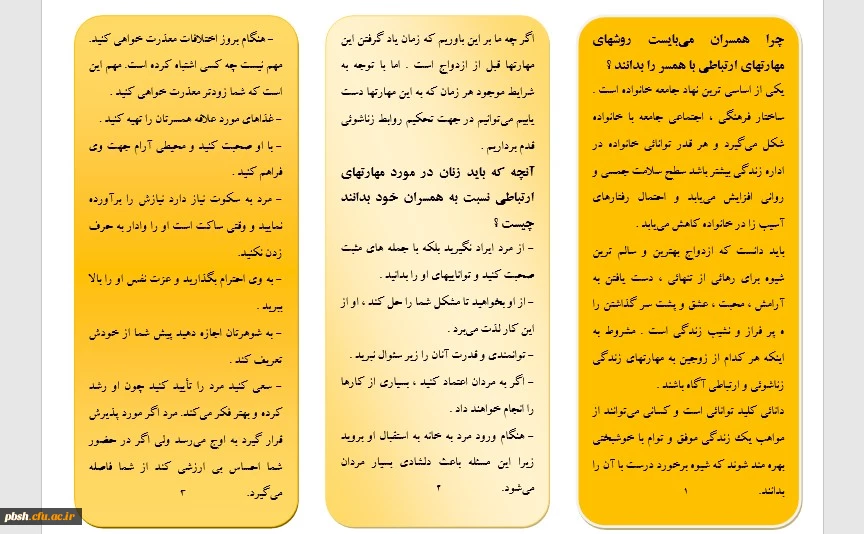 چرا همسران می‌بایست روشهای
مهارتهای ارتباطی با همسر را بدانند ؟
یکی از اساسی ترین نهاد جامعه خانواده است .
ساختار فرهنگی ، اجتماعی جامعه با خانواده
شکل می‌گیرد و هر قدر توانائی خانواده در
اداره زندگی بیشتر باشد سطح سلامت جسمی و
روانی افزایش می‌یابد و احتمال رفتارهای
آسیب زا در خانواده کاهش می‌یابد .
باید دانست که ازدواج بهترین و سالم ترین
شیوه برای رهائی از تنهائی ، دست یافتن به
آرامش ، محبت ، عشق و پشت سر گذاشتن را
ه پر فراز و نشیب زندگی است . مشروط به
اینکه هر کدام از زوجین به مهارتهای زندگی
زناشوئی و ارتباطی آگاه باشند .
دانائی کلید توانائی است و کسانی می‌توانند از
مواهب یک زندگی موفق و توام با خوشبختی
بهره مند شوند که شیوه برخورد درست با آن را
بدانند.
۱
اگر چه ما بر این باوریم که زمان یاد گرفتن این
مهارتها قبل از ازدواج است . اما با توجه به
شرایط موجود هر زمان که به این مهارتها دست
یابیم می‌توانیم در جهت تحکیم روابط زناشوئی
قدم برداریم .
آنچه که باید زنان در مورد مهارتهای
ارتباطی نسبت به همسران خود بدانند
چیست ؟
- از مرد ایراد نگیرید بلکه با جمله های مثبت
صحبت کنید و تواناییهای او را بدانید .
- از او بخواهید تا مشکل شما را حل کند ، او از
این کار لذت می‌برد .
- توانمندی و قدرت آنان را زیر سئوال نبرید .
- اگر به مردان اعتماد کنید ، بسیاری از کارها
را انجام خواهند داد .
- هنگام ورود مرد به خانه به استقبال او بروید
زیرا این مسئله باعث دلشادی بسیار مردان
می‌شود.
۲
- هنگام بروز اختلافات معذرت خواهی کنید.
مهم نیست چه کسی اشتباه کرده است. مهم این
است که شما زودتر معذرت خواهی کنید .
- غذاهای مورد علاقه همسرتان را تهیه کنید .
- با او صحبت کنید و محیطی آرام جهت وی
فراهم کنید .
- مرد به سکوت نیاز دارد نیازش را برآورده
نمایید و وقتی ساکت است او را وادار به حرف
زدن نکنید.
- به وی احترام بگذارید و عزت نفس او را بالا
ببرید .
- به شوهرتان اجازه دهید پیش شما از خودش
تعریف کند .
- سعی کنید مرد را تأیید کنید چون او رشد
کرده و بهتر فکر می‌کند. مرد اگر مورد پذیرش
قرار گیرد به اوج می‌رسد ولی اگر در حضور
شما احساس بی ارزشی کند از شما فاصله
می‌گیرد.
۳
pbsh.cfu.ac.ir